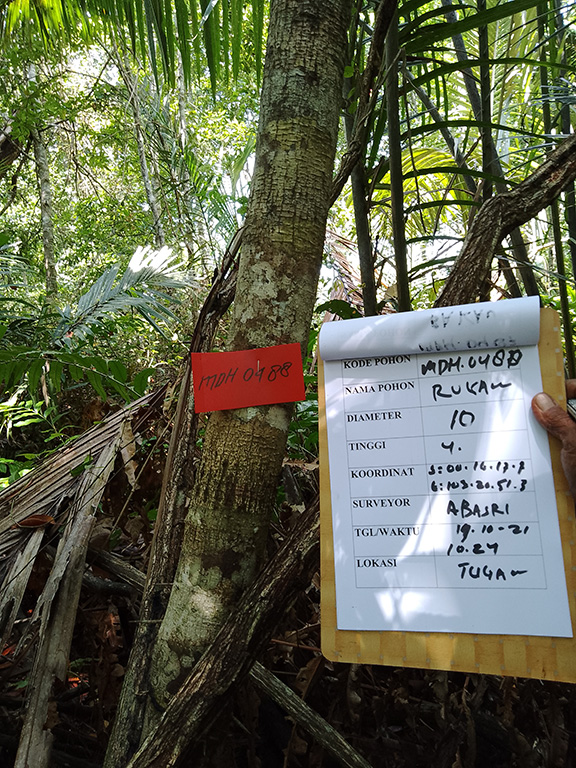 MDH 0488
KODE POHON MDH.0488
NAMA POHON RUKAM
DIAMETER 10
TINGGI 4.
KOORDINAT S:00.16.17.9
E:103.20.51.3
SURVEYOR ABASRI
TGL/WAKTU 19-10-21
10.24
LOKASI TUGAM